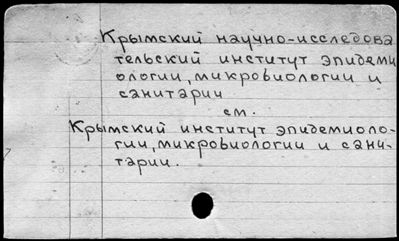 Крымский научно-исследова
тельский институт эпидеми
ологии, микробиологии и
санитарии
см.
Крымский институт эпидемиоло-
гии, микробиологии и сани-
тарии.